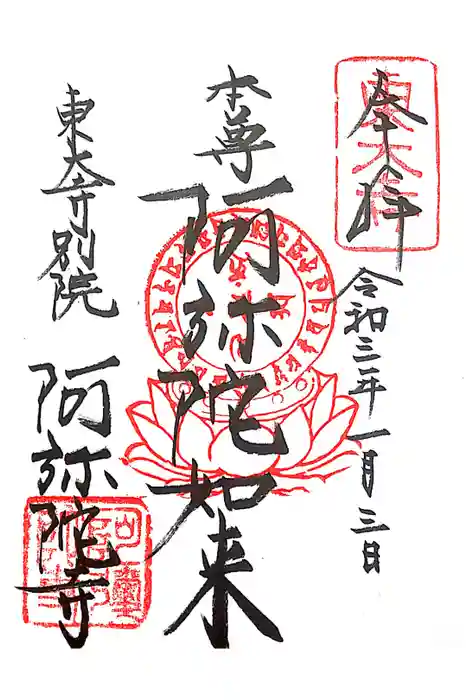 奉拝
令和三年一月三日
本尊
阿弥陀如来
東大寺別院
阿弥陀寺